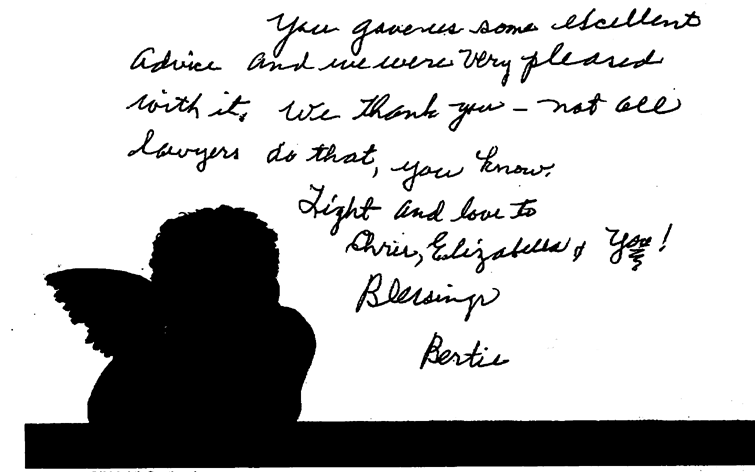 You gave us some excellent
advice and we were very pleased
with it. We thank you – not all
lawyers do that, you know.
Light and love to
Chris, Elizabeth & You!
Blessings
Bertie